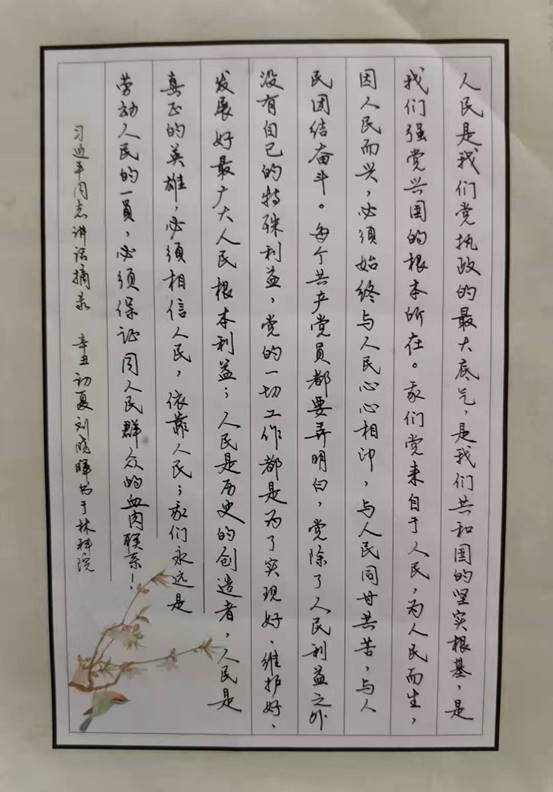 人民是我们党执政的最大底气，是我们共和国的坚实根基，是
我们强党兴国的根本所在。我们党来自于人民，为人民而生，
因人民而兴，必须始终与人民心心相印，与人民同甘共苦，与人
民团结奋斗。每个共产党员都要弄明白，党除了人民利益之外
没有自己的特殊利益，党的一切工作都是为了实现好、维护好、
发展好最广大人民根本利益；人民是历史的创造者，人民是
真正的英雄，必须相信人民，依靠人民；我们永远是
劳动人民的一員，必须保证同人民群众的血肉联系！
习近平同志讲话摘录 辛丑初夏刘晓晖书于林科院